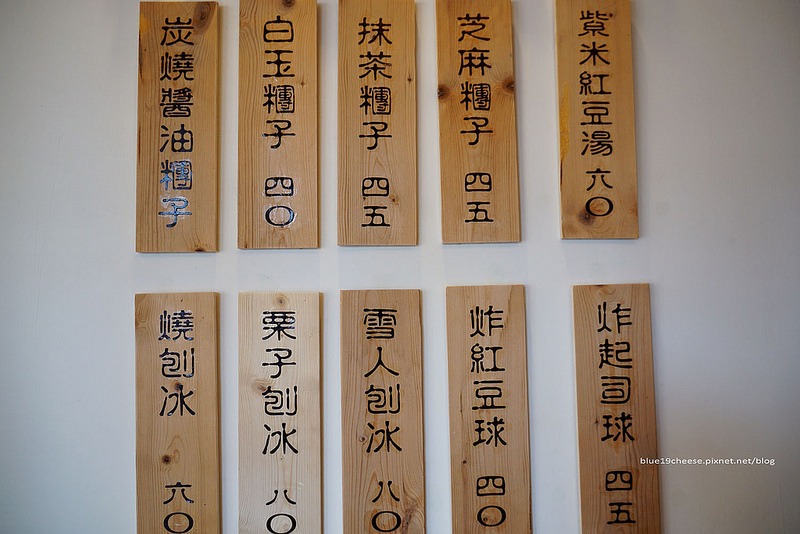 炭燒醬油糰子
白玉糰子 四〇
抹茶糰子 四五
芝麻糰子 四五
紫米紅豆湯 六〇
燒刨冰 六〇
栗子刨冰 八〇
雪人刨冰 八〇
炸紅豆球 四〇
炸起司球 四五
blue19cheese.pixnet.net/blog